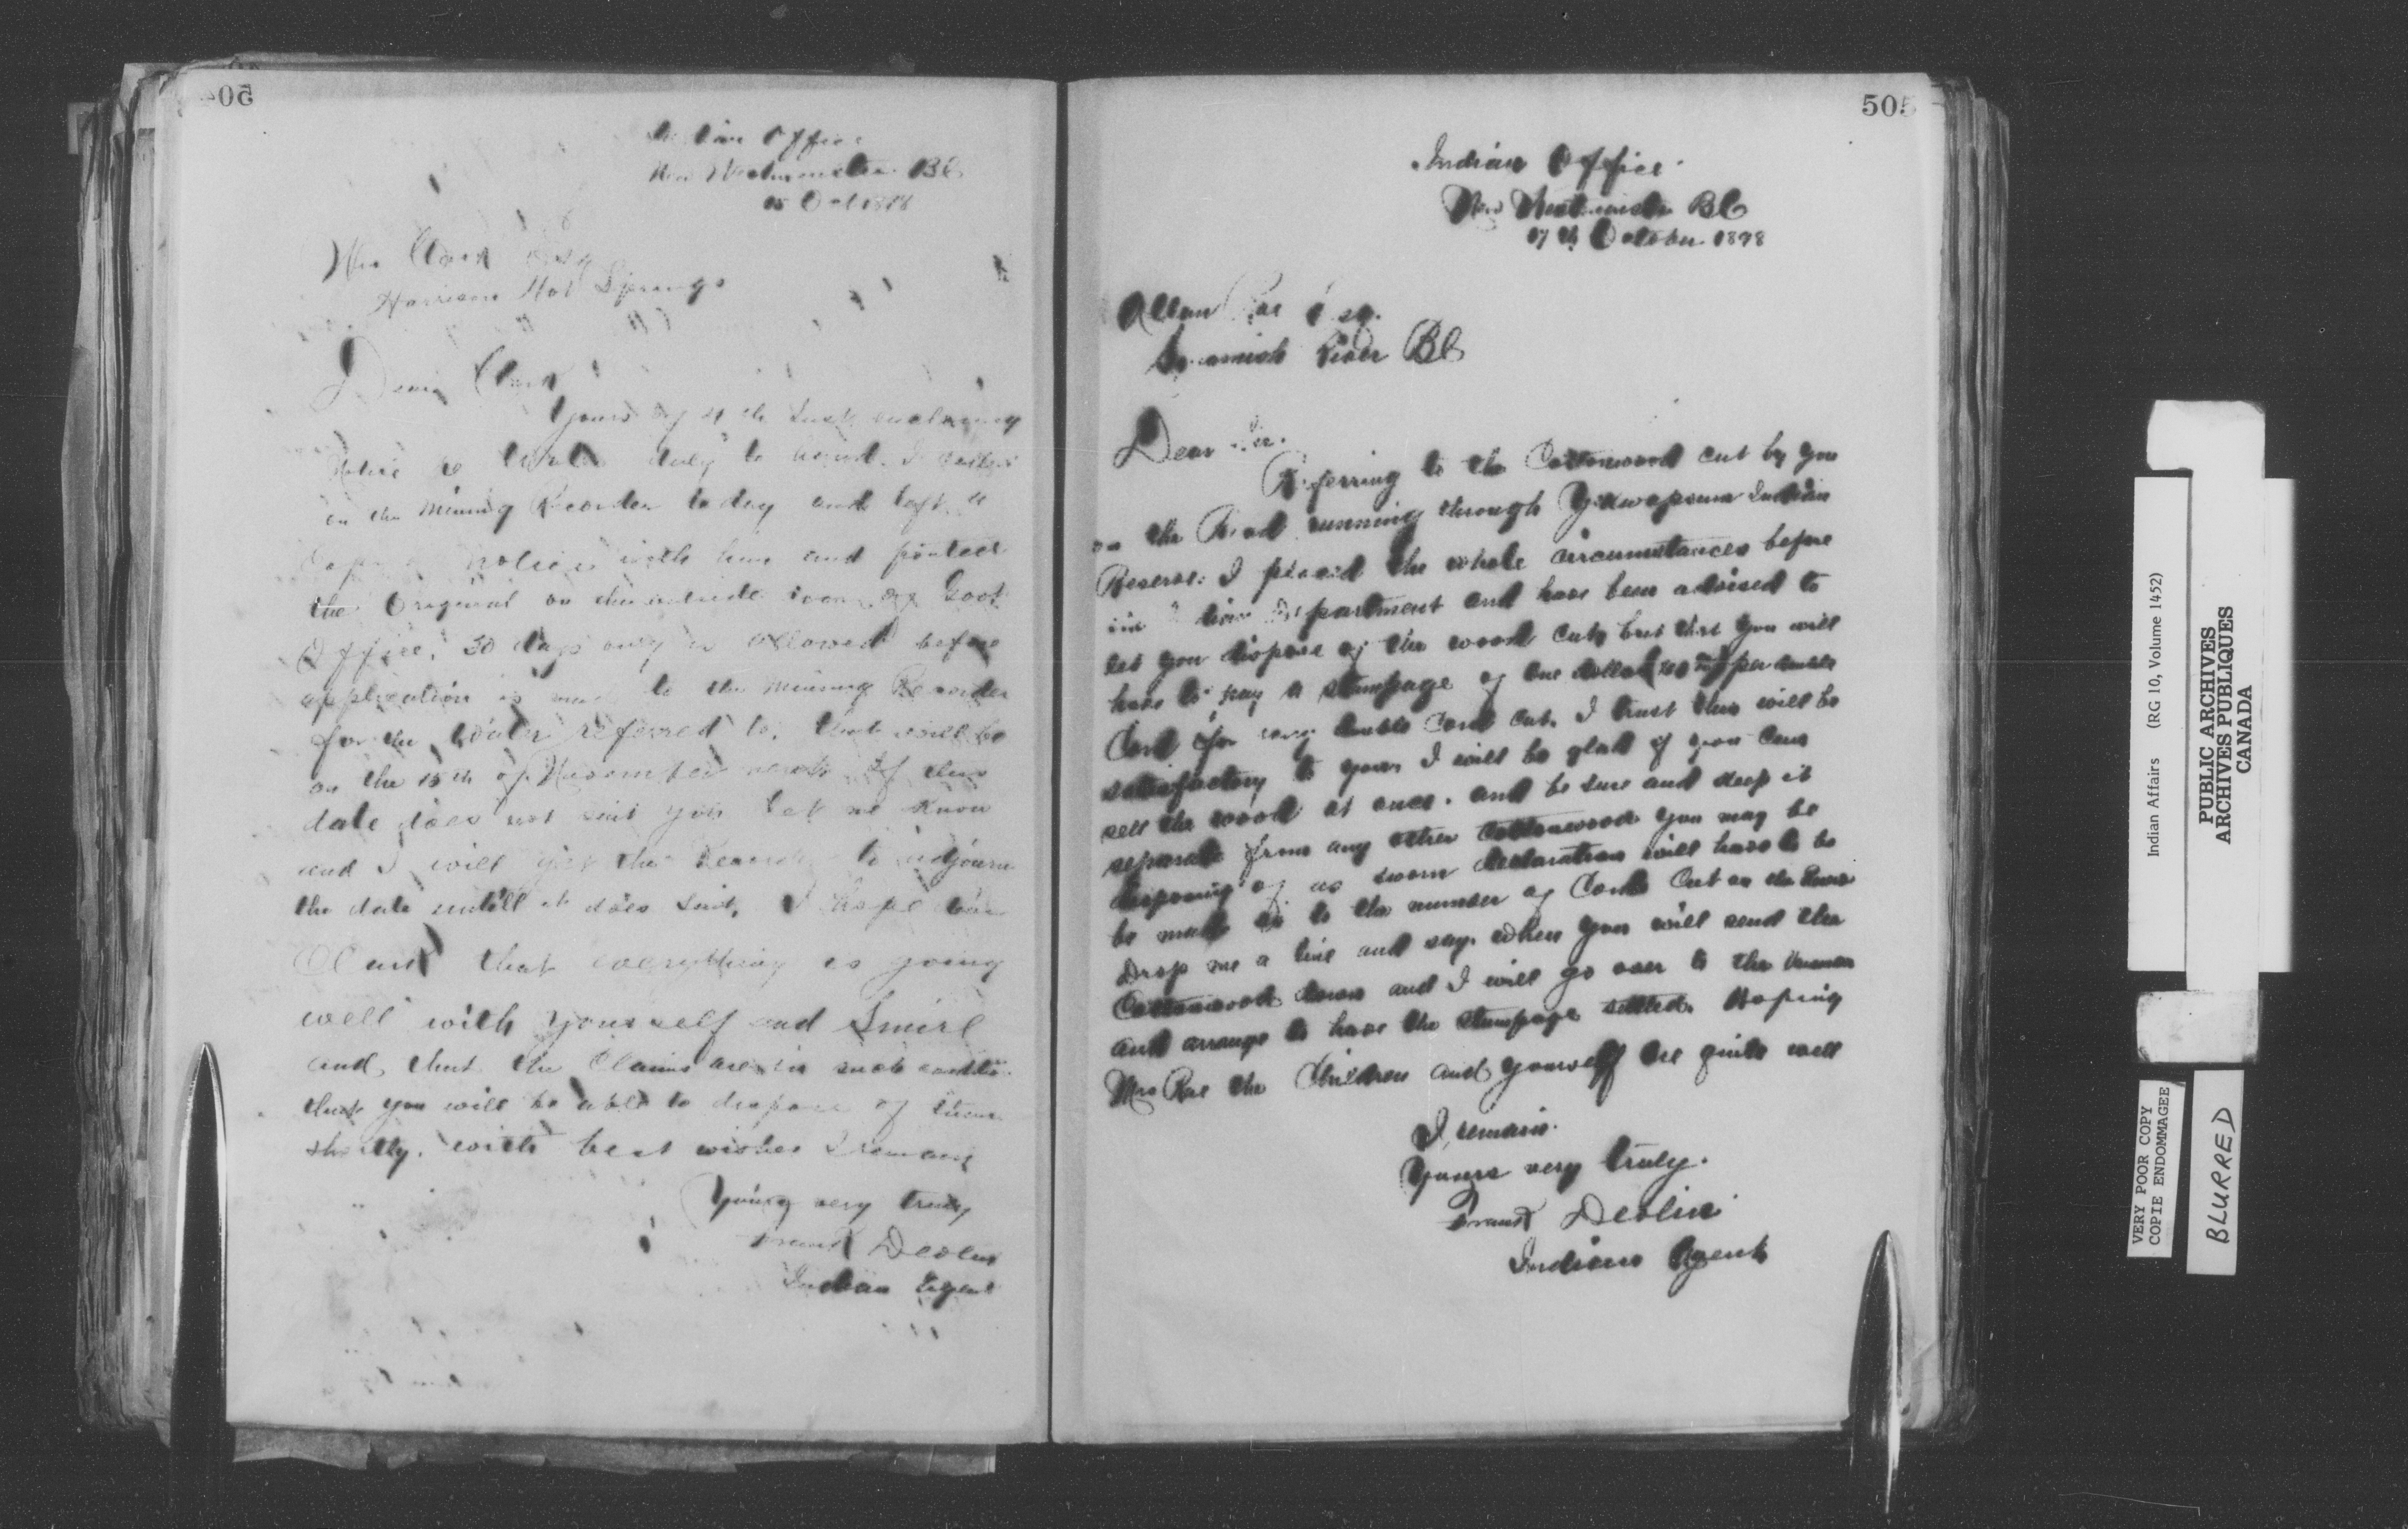 504
Indian Office
New Westminster BC
15 Oct 1898
Wm Clark Esq
Harrison Hot Springs
Dear Clark
Yours of 11 th Inst, enclosing
notice re duly to hand. I called
on the Mining Recorder to day and left a
Copy notice with him and posted
the Original on the outside Govt
Office, 30 days only is allowed before
application is made to the Mining Recorder
for the Water referred to, that will be
on the 15th of November next if this
date does not suit you let me know
and I will get the Recorder to adjourn
the date untill it does suit, I hope
Clark that everything is going
well with yourself and Smirl
and that the Claims are in such
that you will be able to dispose of them
shortly. with best wishes I remain
Yours very truly
Frank Devlin
Indian Agent
505
Indian Office
New Westminster BC
17 th October 1898
Allan Rae Esq.
Squamish River BC
Dear Sir.
Referring to the Cottonwood cut by you
on the Road running through Indian
Reserve: I placed the whole circumstances before
Department and have been advised to
let you dispose of the wood cut, but that you will
have to pay a stumpage of one dollar per double
Cord for every double Cord cut. I trust this will be
satisfactory to you, I will be glad if you can
sell the wood at once. and be sure and keep it
separate from any other Cottonwood you may be
disposing of as sworn declaration will have to be
be made as to the number of Cords Cut on the
Drop me a line and say when you will send the
Cottonwood down and I will go over to the
and arrange to have the stumpage settled. Hoping
Mrs Rae the Children and yourself are quite well
I remain.
Yours very truly.
Frank Devlin
Indian Agent
Indian Affairs (RG 10, Volume 1452)
PUBLIC ARCHIVES
ARCHIVES PUBLIQUES
CANADA
VERY POOR COPY
COPIE ENDOMMAGEE
BLURRED